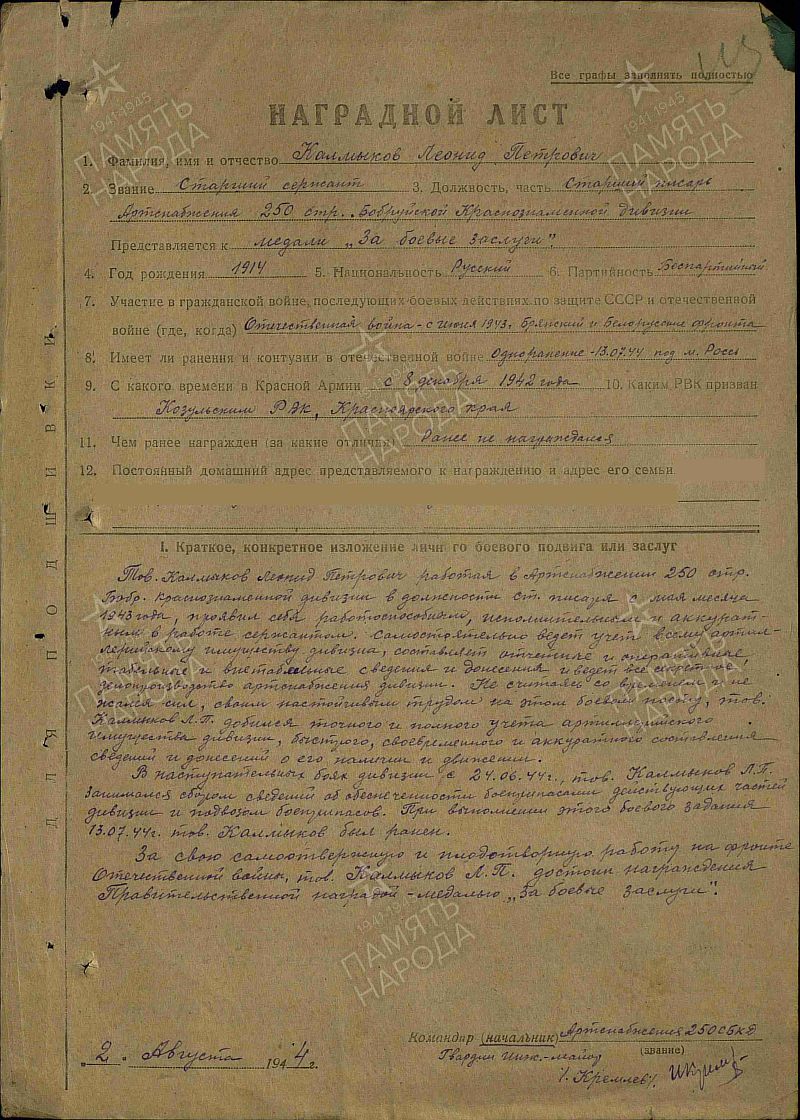 Все графы заполнять полностью
НАГРАДНОЙ ЛИСТ
1. Фамилия, имя и отчество Калмыков Леонид Петрович
2. Звание Старший сержант 3. Должность, часть Старший писарь
Артснабжения 250 стр. Бобруйской Краснознаменной дивизии
Представляется к медали „За боевые заслуги".
4. Год рождения 1914 5. Национальность Русский 6. Партийность Беспартийный
7. Участие в гражданской войне, последующих боевых действиях по защите СССР и отечественной
войне (где, когда) Отечественная война - с июня 1943. Брянский и Белорусские фронта
8. Имеет ли ранения и контузии в отечественной войне Одно ранение - 13.07.44 под м. Россь
9. С какого времени в Красной Армии с 8 декабря 1942 года 10. Каким РВК призван
Козульским РВК, Красноярского края
11. Чем ранее награжден (за какие отличия) Ранее не награждался
12. Постоянный домашний адрес представляемого к награждению и адрес его семьи
I. Краткое, конкретное изложение личного боевого подвига или заслуг
Тов. Калмыков Леонид Петрович работая в Артснабжении 250 стр.
Бобр. краснознаменной дивизии в должности ст. писаря с мая месяца
1943 года, проявил себя работоспособным, исполнительным и аккурат-
ным в работе сержантом. Самостоятельно ведет учет всему артил-
лерийскому имуществу дивизии, составляет отчетные и оперативные,
табельные и внетабельные сведения и донесения и ведет все секретное
делопроизводство артснабжения дивизии. Не считаясь со временем и не
жалея сил, своим настойчивым трудом на этом боевом посту, тов.
Калмыков Л.П. добился точного и полного учета артиллерийского
имущества дивизии, быстрого, своевременного и аккуратного составления
сведений и донесений о его наличии и движении.
В наступательных боях дивизии с 24.06.44г., тов. Калмыков Л.П.
занимался сбором сведений об обеспеченности боеприпасами действующих частей
дивизии и подвозом боеприпасов. При выполнении этого боевого задания
13.07.44г. тов. Калмыков был ранен.
За свою самоотверженную и плодотворную работу на фронте
Отечественной войны, тов. Калмыков Л.П. достоин награждения
Правительственной наградой - медалью „За боевые заслуги".
Командир (начальник) Артснабжения 250 СБКД
(звание)
Гвардии Инж.-майор
/. Кремлев/.
2. Августа 1944г.
ДЛЯ ПОДШИВКИ
1941-1945
ПАМЯТЬ
НАРОДА